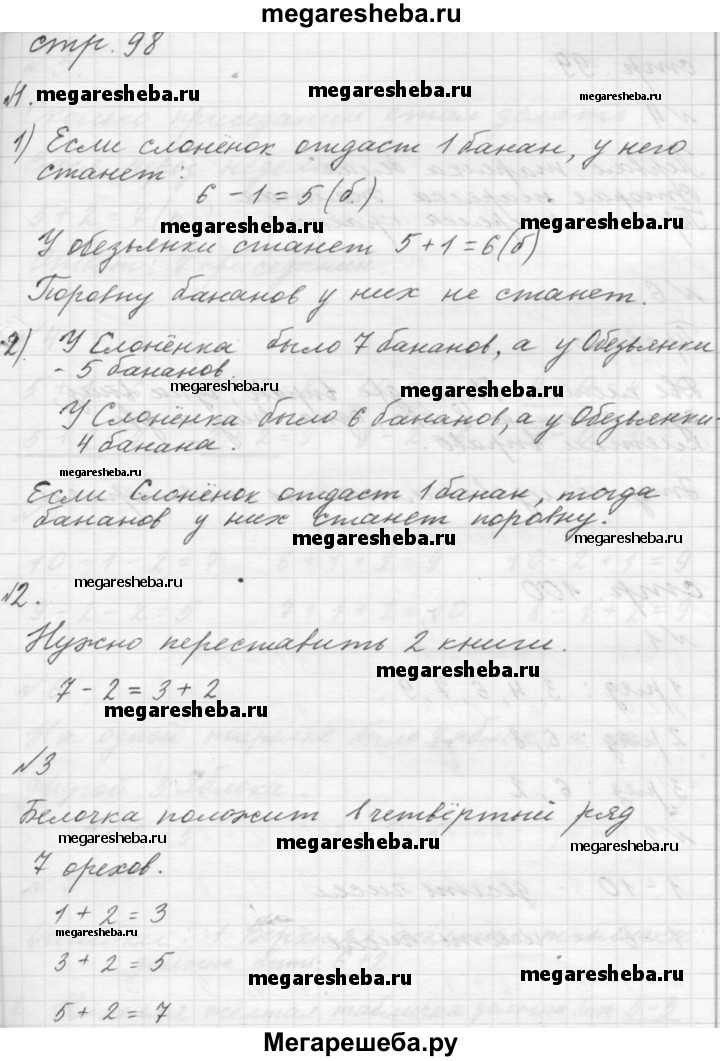 megaresheba.ru
стр. 98
№1. megaresheba.ru megaresheba.ru megaresheba.ru
1) Если слонёнок отдаст 1 банан, у него
станет:
6 - 1 = 5 (б.)
megaresheba.ru
У обезьянки станет 5 + 1 = 6 (б)
Поровну бананов у них не станет.
2) У Слонёнка было 7 бананов, а у Обезьянки
- 5 бананов.
megaresheba.ru megaresheba.ru
У Слонёнка было 6 бананов, а у Обезьянки-
4 банана.
megaresheba.ru
Если Слонёнок отдаст 1 банан, тогда
бананов у них станет поровну.
megaresheba.ru megaresheba.ru
№2. megaresheba.ru
Нужно переставить 2 книги.
megaresheba.ru
7 - 2 = 3 + 2
megaresheba.ru
№3
Белочка положит в четвёртый ряд
megaresheba.ru megaresheba.ru megaresheba.ru
7 орехов.
1 + 2 = 3
megaresheba.ru
3 + 2 = 5
megaresheba.ru megaresheba.ru
5 + 2 = 7
Мегарешеба.ру